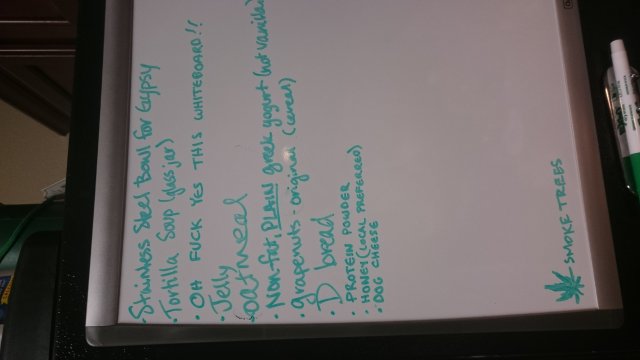 • Stainless Steel Bowl for Gypsy
• Tortilla Soup (glass jar)
• OH FUCK YES THIS WHITEBOARD!!
• Jelly
• oatmeal
• Non-fat, PLAIN greek yogurt (not vanilla)
• grapenuts - original (cereal)
• D bread
• PROTEIN POWDER
• HONEY (LOCAL PREFERRED)
• DOG CHEESE
SMOKE TREES